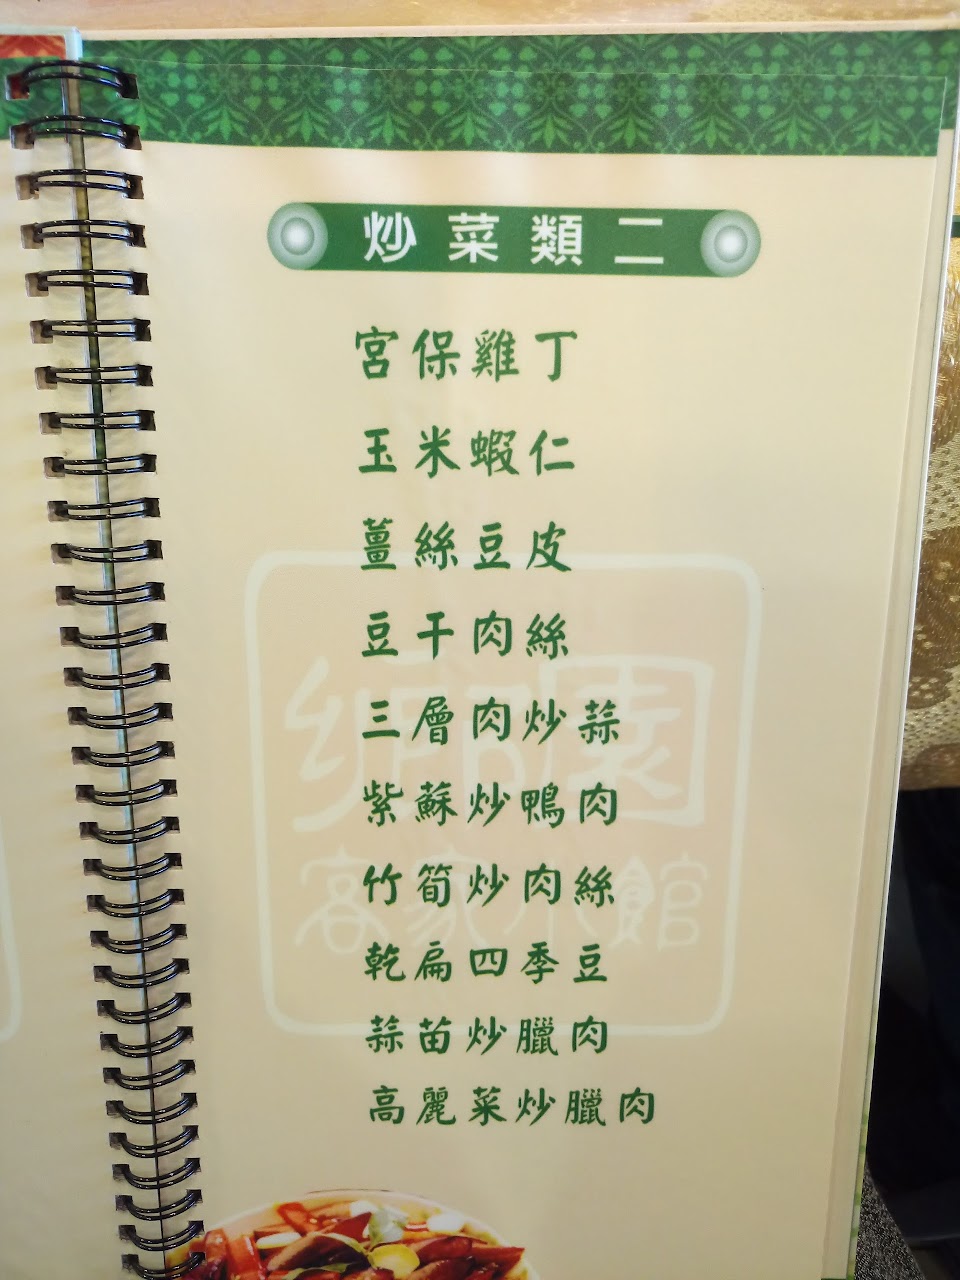 炒菜類二
宮保雞丁
玉米蝦仁
薑絲豆皮
豆干肉絲
三層肉炒蒜
紫蘇炒鴨肉
竹筍炒肉絲
乾扁四季豆
蒜苗炒臘肉
高麗菜炒臘肉
園
客家小館